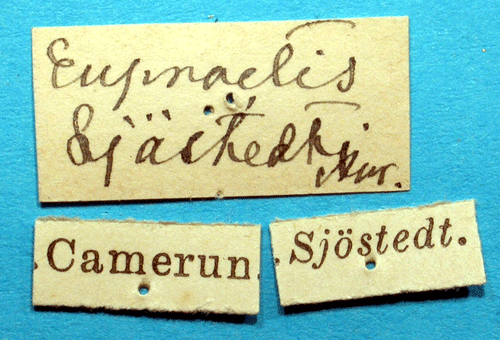 Eupnoelis
Sjöstedti
Aur.
Camerun.
Sjöstedt.